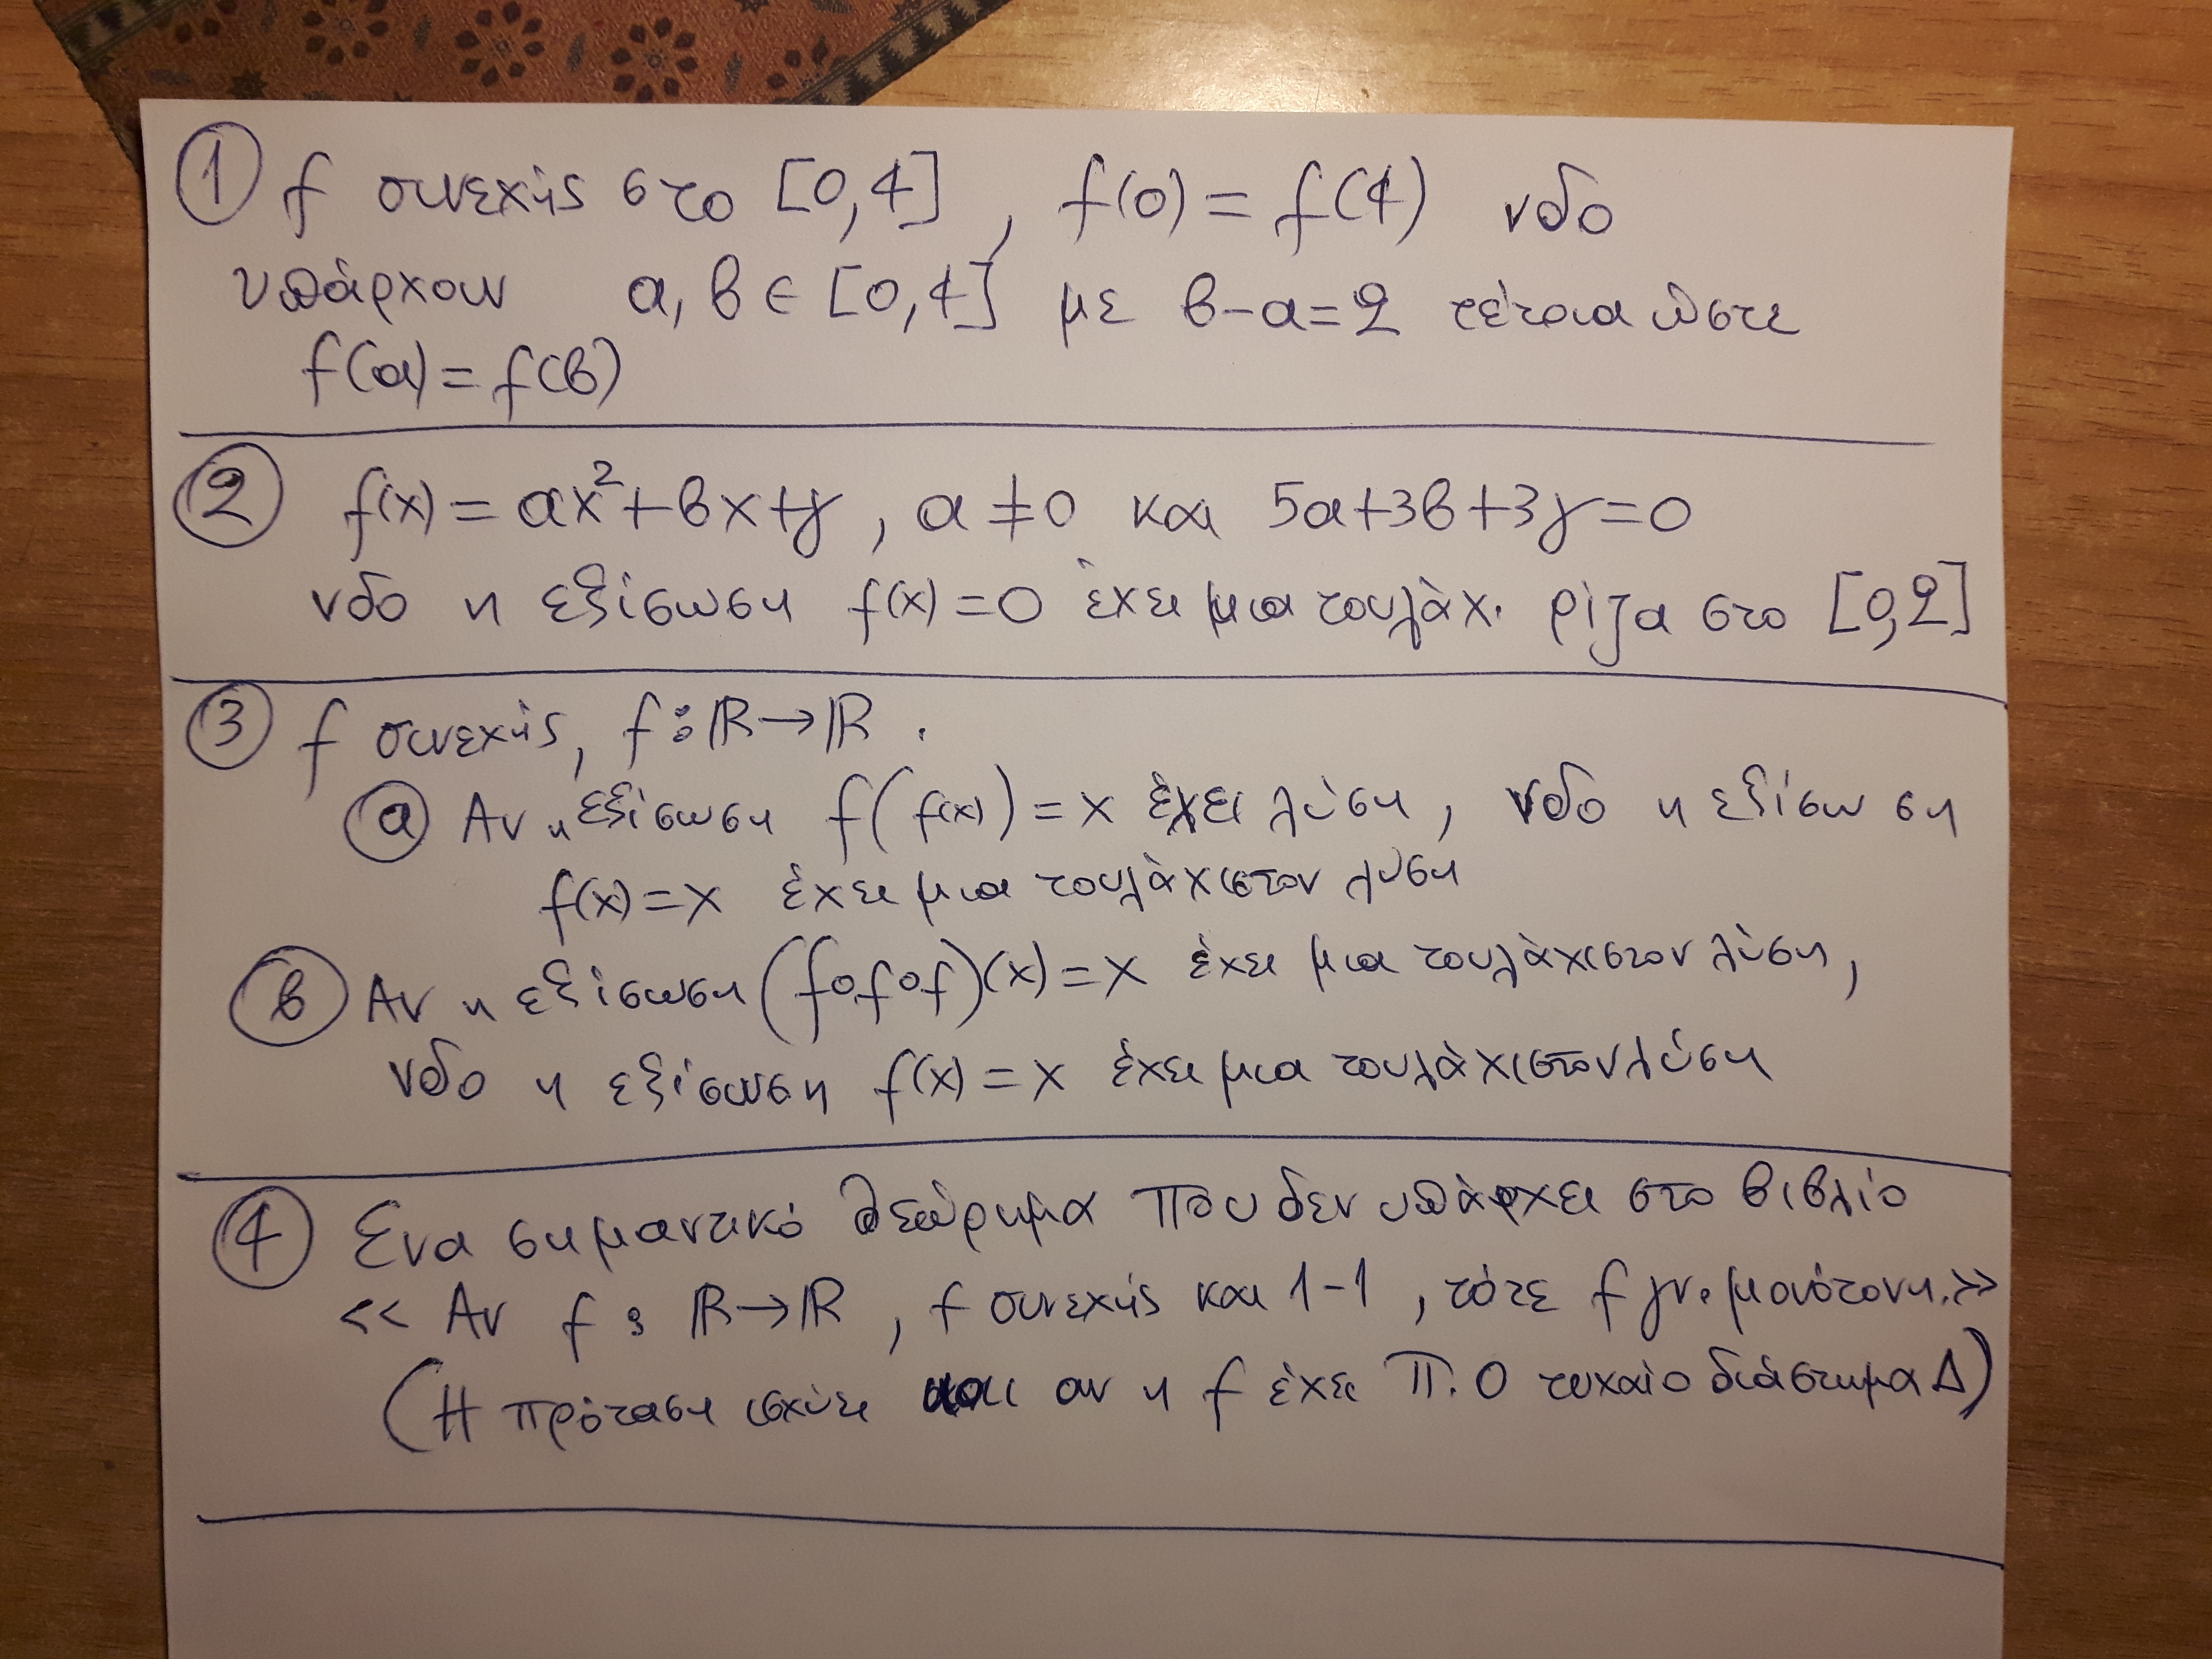 ① f συνεχής στο [0,4] , f(0) = f(4) νδο
υπάρχουν α, β ∈ [0,4] με β-α=2 τέτοια ώστε
f(α) = f(β)
② f(x) = αx²+βx+γ , α ≠ 0 και 5α+3β+3γ=0
νδο η εξίσωση f(x) = 0 έχει μια τουλάχ. ρίζα στο [0,2]
③ f συνεχής, f: ℝ→ℝ .
ⓐ Αν η εξίσωση f(f(x)) = x έχει λύση, νδο η εξίσωση
f(x) = x έχει μια τουλάχιστον λύση
ⓑ Αν η εξίσωση (fofof)(x) = x έχει μια τουλάχιστον λύση,
νδο η εξίσωση f(x) = x έχει μια τουλάχιστον λύση
④ Ένα σημαντικό θεώρημα που δεν υπάρχει στο βιβλίο
<< Αν f : ℝ→ℝ , f συνεχής και 1-1 , τότε f γν. μονότονη.>>
(Η πρόταση ισχύει και αν η f έχει Π.Ο τυχαίο διάστημα Δ)